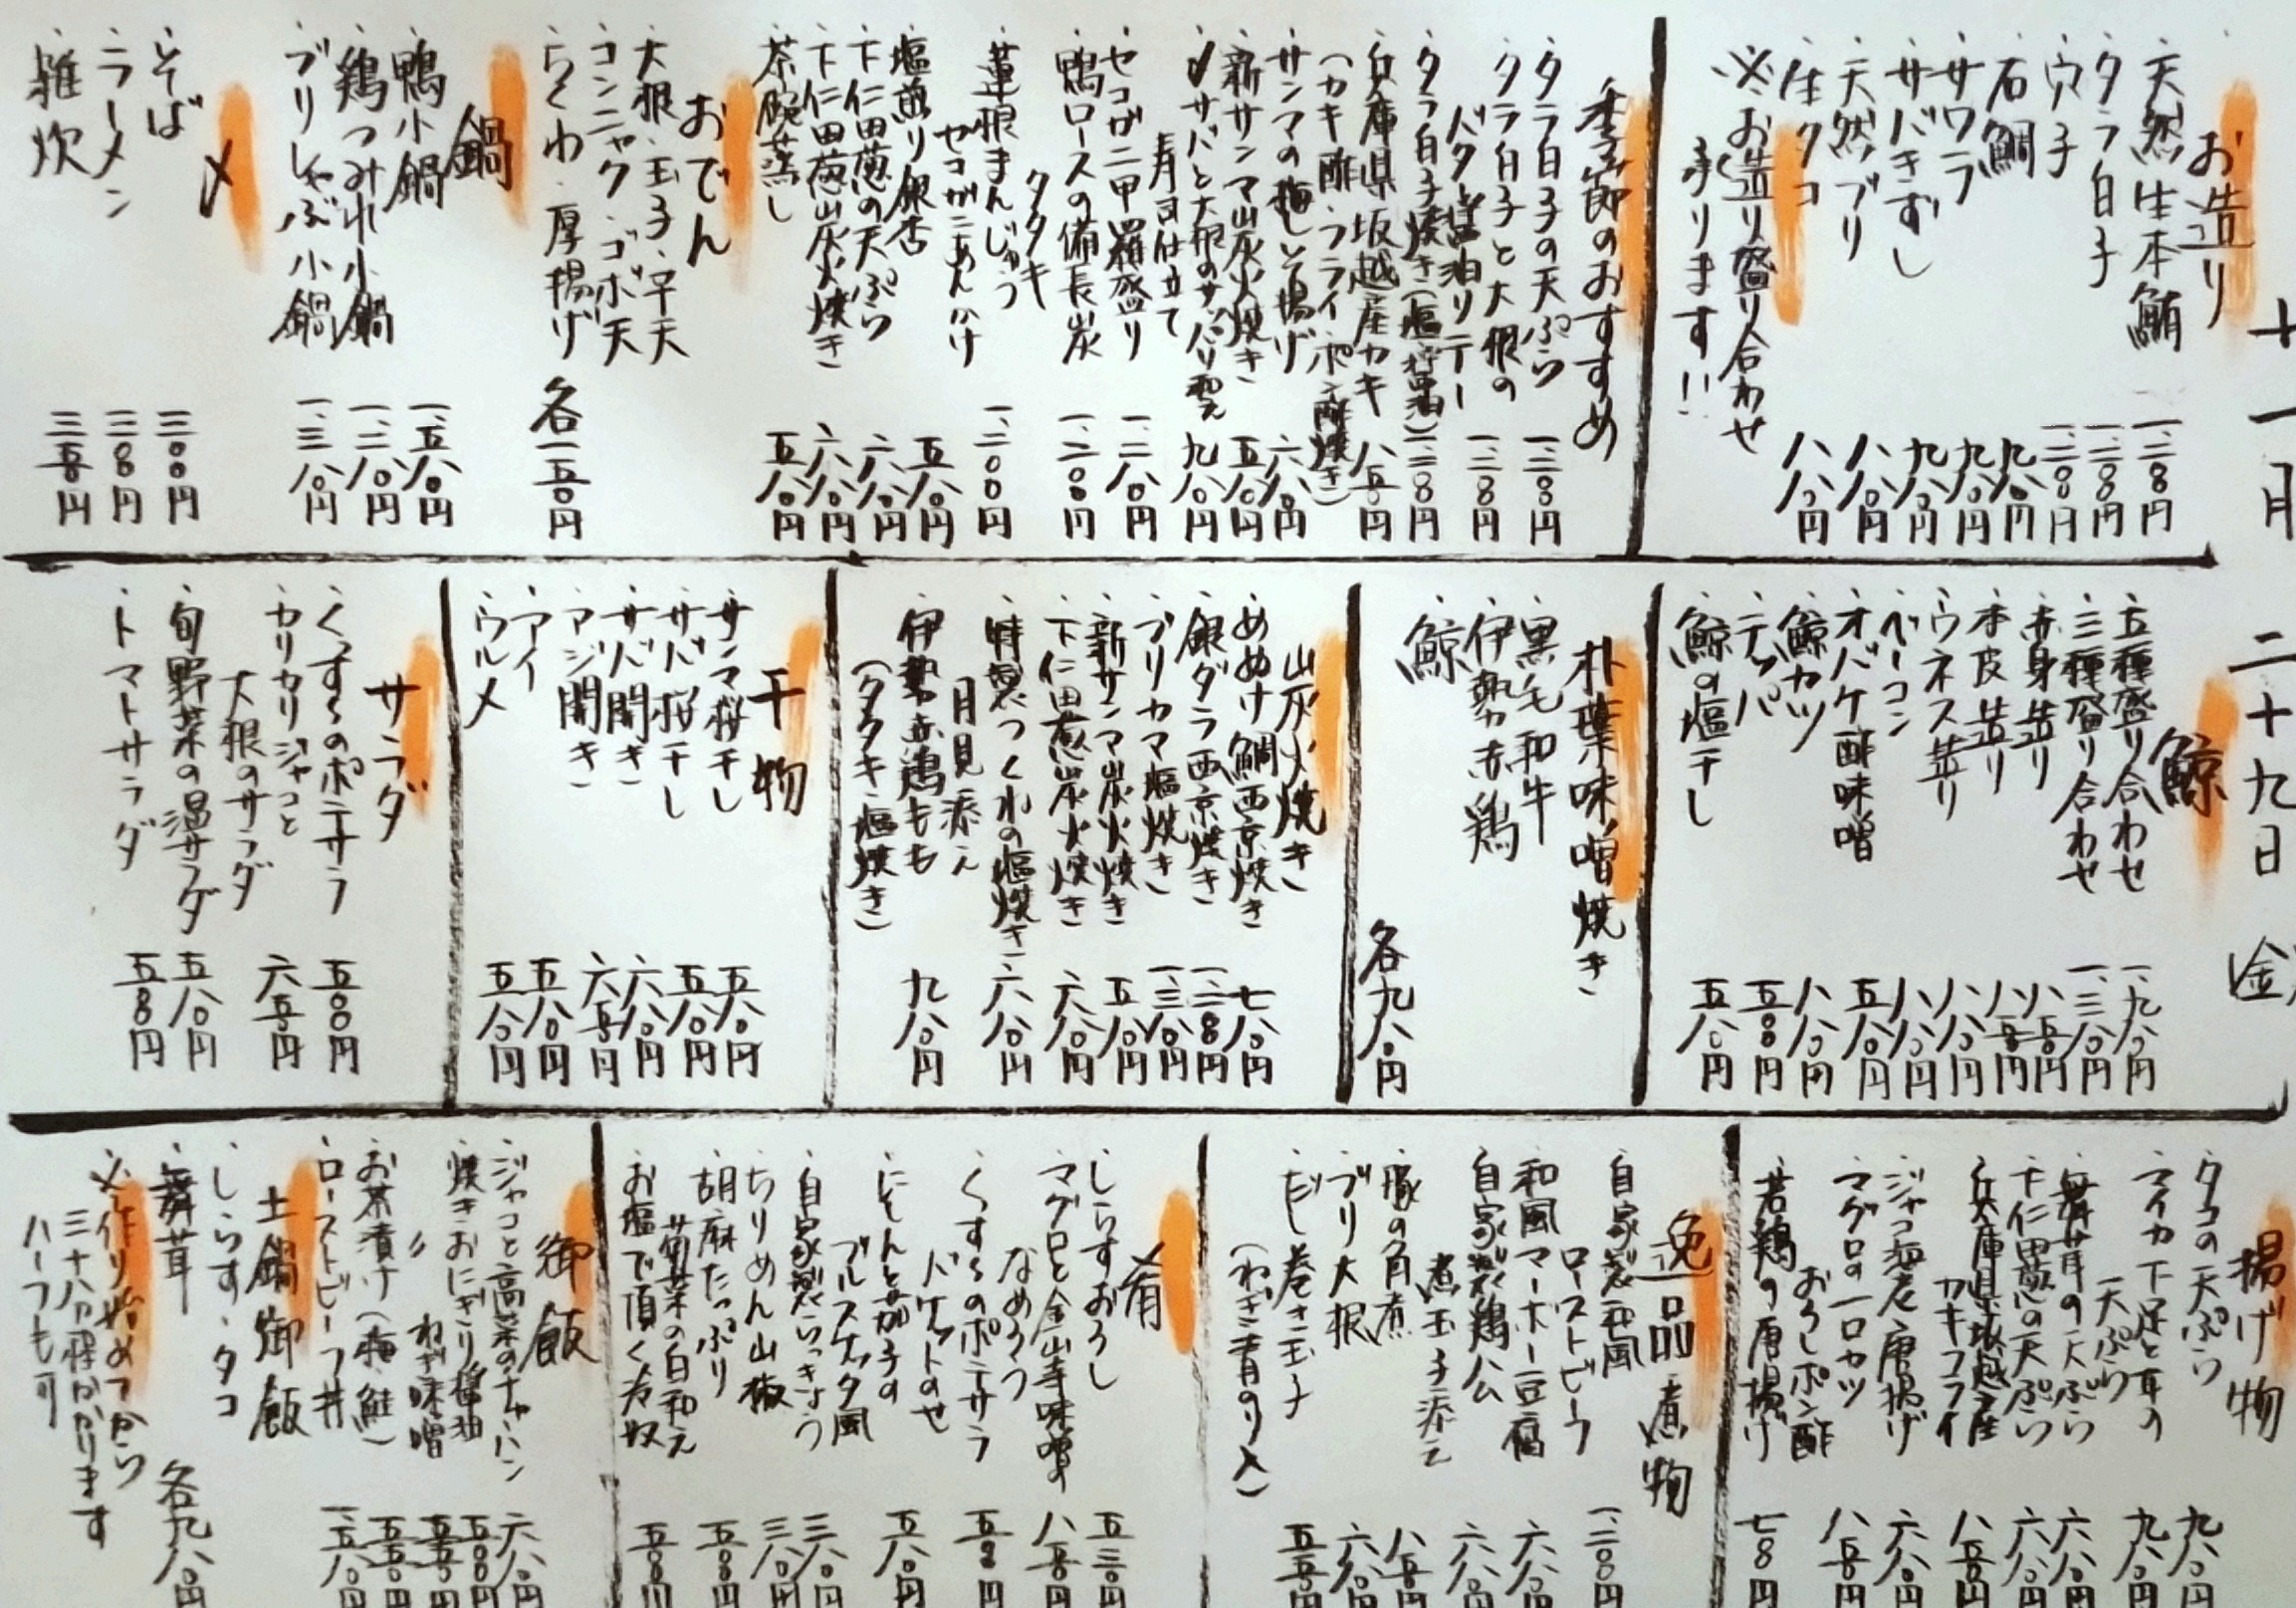 十一月二十九日 金
お造り
・天然生本鮪 一、二八〇円
・タラ白子 一、二八〇円
・穴子 一、二八〇円
・石鯛 九八〇円
・サワラ 九八〇円
・サバきずし 九八〇円
・天然ブリ 八八〇円
・生タコ 八八〇円
※お造り盛り合わせ
承ります!!
季節のおすすめ
・タラ白子の天ぷら 一、二八〇円
・タラ白子と大根の
バター醤油ソテー 一、二八〇円
・タラ白子焼き(塩・醤油) 一、二八〇円
・兵庫県坂越産カキ 八五〇円
(カキ酢・フライ・ポン酢焼き)
・サンマの梅しそ揚げ 六八〇円
・新サンマ炭火焼き 五八〇円
・〆サバと大根のサッパリ和え 九八〇円
・セコガニ甲羅盛り 一、二八〇円
・鴨ロースの備長炭
タタキ 一、二八〇円
・蓮根まんじゅう
セコガニあんかけ 一、二〇〇円
・塩煎り銀杏 五八〇円
・下仁田葱の天ぷら 六八〇円
・下仁田葱炭火焼き 六八〇円
・茶碗蒸し 五八〇円
おでん
・大根・玉子・平天
・コンニャク・ゴボ天
・ちくわ・厚揚げ 各一五〇円
鍋
・鴨小鍋 一、五八〇円
・鶏つみれ小鍋 一、二八〇円
・ブリしゃぶ小鍋 一、三八〇円
〆
・そば 三〇〇円
・ラーメン 三〇〇円
・雑炊 三五〇円
鯨
・五種盛り合わせ 一、九八〇円
・三種盛り合わせ 一、三八〇円
・赤身造り 八五〇円
・本皮造り 八五〇円
・ウネス造り 八八〇円
・ベーコン 八八〇円
・オバケ酢味噌 五八〇円
・鯨カツ 八八〇円
・テッパ 五〇〇円
・鯨の塩干し 五八〇円
朴葉味噌焼き
・黒毛和牛
・伊勢赤鶏
・鯨 各九八〇円
炭火焼き
・めぬけ鯛西京焼き 七八〇円
・銀ダラ西京焼き 一、二八〇円
・ブリカマ塩焼き 一、三八〇円
・新サンマ炭火焼き 五八〇円
・下仁田葱炭火焼き 六八〇円
・特製つくねの塩焼き
月見添え 六八〇円
・伊勢赤鶏もも
(タタキ・塩焼き) 九八〇円
干物
・サンマ桜干し 五八〇円
・サバ桜干し 五八〇円
・サバ開き 六八〇円
・アジ開き 六五〇円
・アイ 五八〇円
・ウルメ 五八〇円
サラダ
・くずきのポテサラ 五〇〇円
・カリカリジャコと
大根のサラダ 六五〇円
・旬野菜の温サラダ 五八〇円
・トマトサラダ 五〇〇円
揚げ物
・タコの天ぷら 九八〇円
・マイカ下足と耳の
天ぷら 九八〇円
・舞茸の天ぷら 六八〇円
・下仁田葱の天ぷら 六八〇円
・兵庫県坂越産
カキフライ 八五〇円
・ジャコ海老唐揚げ 六八〇円
・マグロの一口カツ
おろしポン酢 八五〇円
・若鶏の唐揚げ 七八〇円
逸品・煮物
・自家製和風
ローストビーフ 一、二〇〇円
・和風マーボー豆腐 六八〇円
・自家製鶏ハム 六八〇円
・豚の角煮
煮玉子添え 八五〇円
・ブリ大根 六八〇円
・だし巻き玉子
(ねぎ・青のり入) 五五〇円
肴
・しらすおろし 五三〇円
・マグロと金山寺味噌の
なめろう 八五〇円
・くずきのポテサラ 五〇〇円
・にしんと茄子の
バケットのせ
ブルスケッタ風 五八〇円
・自家製らっきょう 三八〇円
・ちりめん山椒 三八〇円
・胡麻たっぷり
菊菜の白和え 五五〇円
・お塩で頂く冷奴 五〇〇円
御飯
・ジャコと高菜のチャーハン 六八〇円
・焼きおにぎり醤油 五〇〇円
〃 ねぎ味噌 五五〇円
・お茶漬け(梅・鮭) 五五〇円
・ローストビーフ丼 一、五八〇円
土鍋御飯
・しらす・タコ
・舞茸 各九八〇円
※作り始めてから
三十八分程かかります
ハーフも可